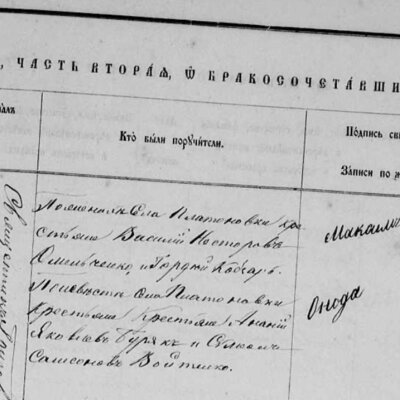 , ЧАСТЬ ВТОРАЯ, Ѿ БРАКОСОЧЕТАВШИ
Кто были поручители.
Подпись св
Записи по ж
По женихѣ Села Платоновки кре
стьяне Василій Несторовъ
Омельченко, и Гордѣй Кобзарь.
По невѣстѣ Села Платоновки
Крестьяне Крестьяне Ананій
Яковлевъ Бурякъ и
Самсоновъ Войтенко.